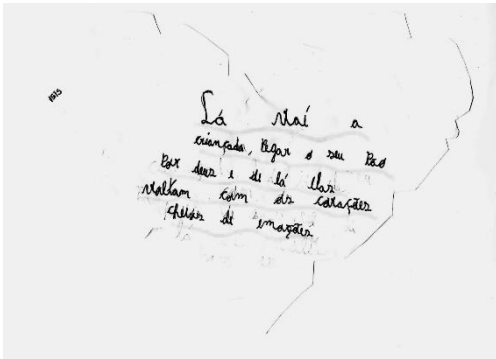 Lá vai a
criançada, Pegar o seu Pao
Por deus e de lá elas
voltam com os corações
cheios de emoções